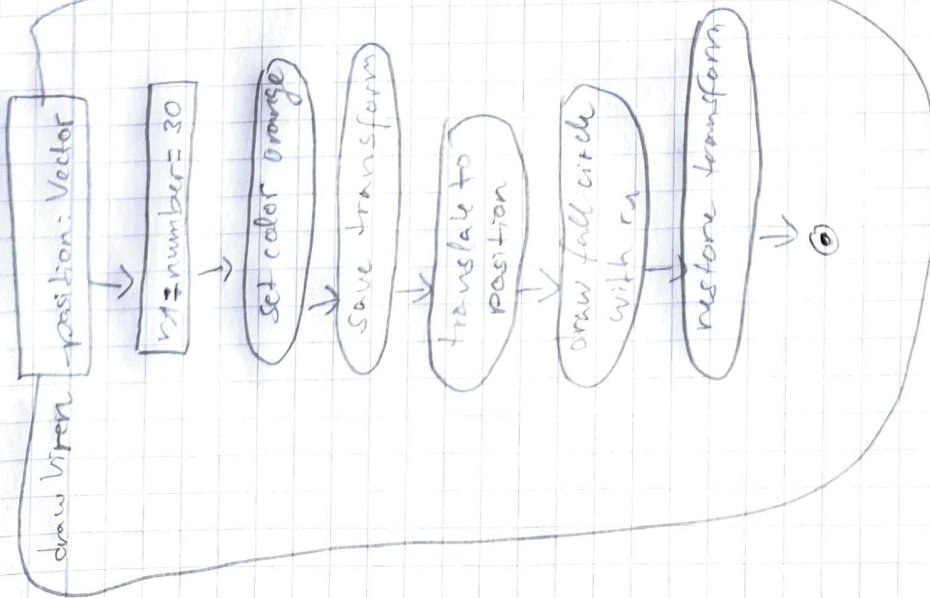 draw Viren
position: Vector
r1: number = 30
set color orange
save transform
translate to
position
draw full circle
with r1
restore transform